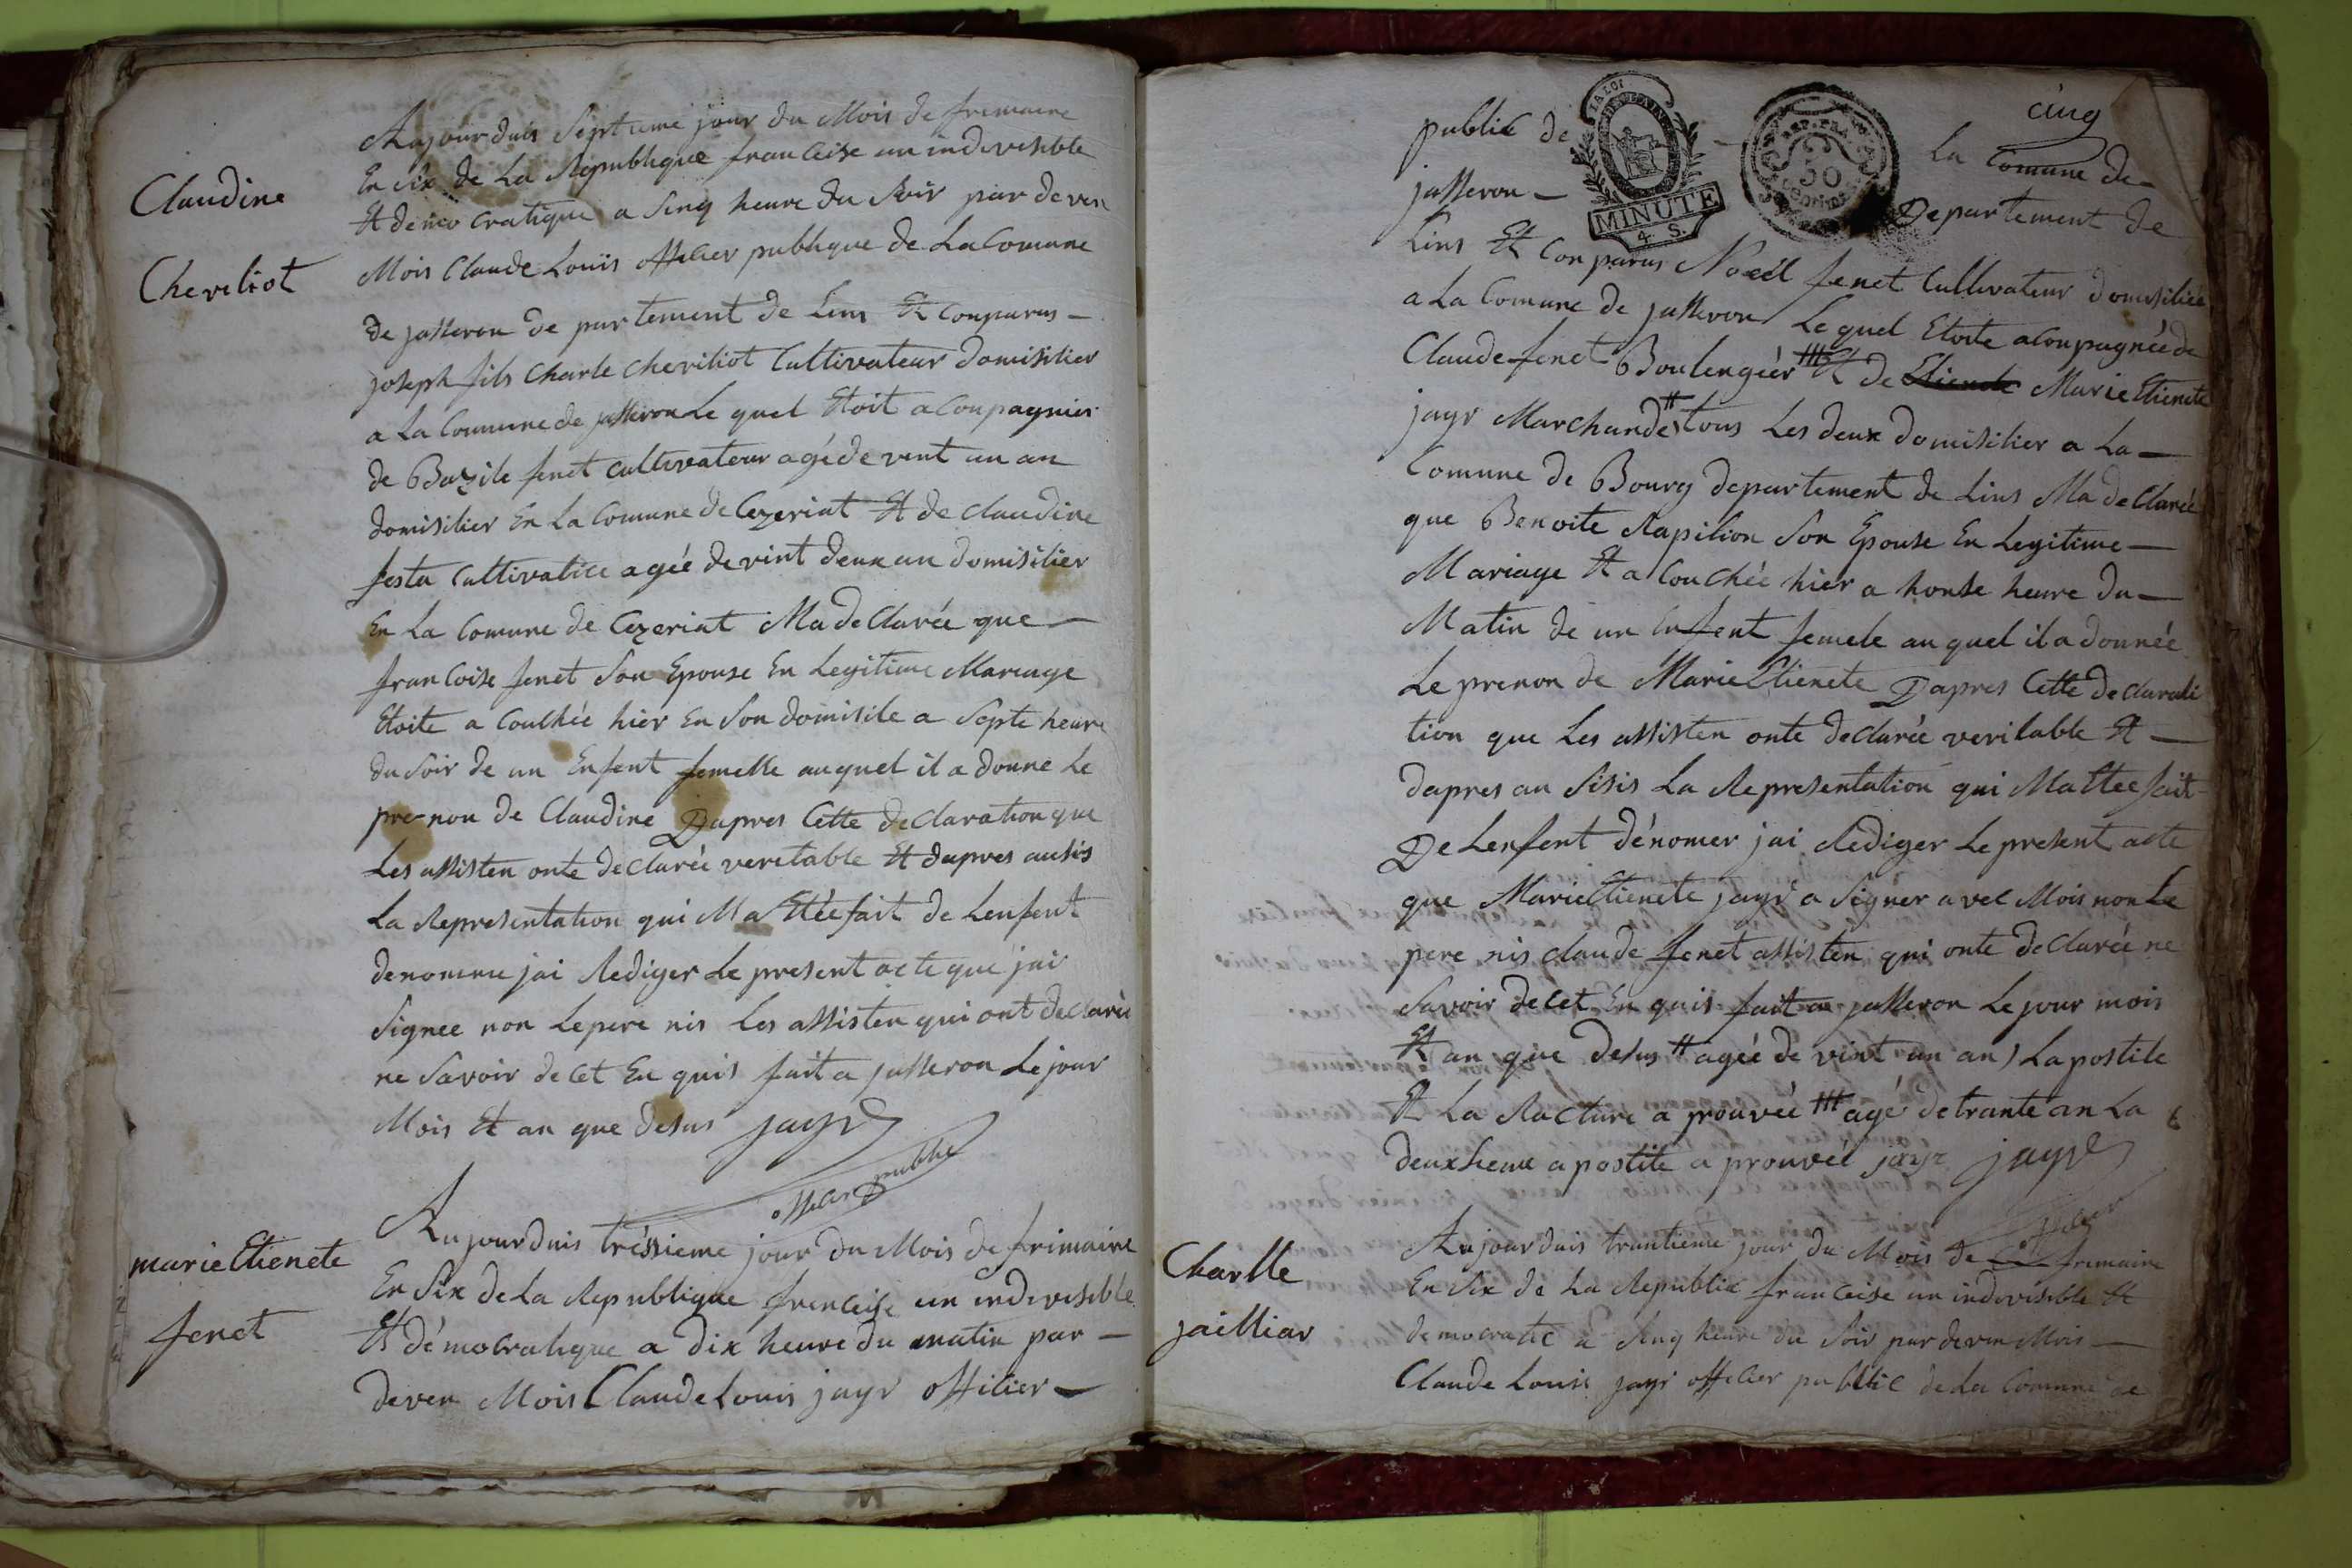 Claudine
Cheviliot
Aujourduis Septieme jour du Mois de frimaire
En Six de La Republique francoise un indivisible
Et democratique a Sinq heure du Soir par deven
Mois Claude Louis offiscier publique de La Comune
de jasseron de partement de Lein Et Conparus –
joseph fils Charle Cheviliot Cultivateur domisilier
a La Comune de jasseron Le quel Etoit aConpagnier
de Bazile fenet Cultivateur agéé de vent un an
domisilier En La Comune de Cezeriat Et de Claudine
festa Cultivatice agéé de vint deux an domisilier
En La Comune de Cezeriat Ma de Clarée que –
francoise fenet Son Epouse En Legitime Mareage
Etoite a Couchée hier En Son domisile a Septe heure
du Soir de un Enfent femelle auquel il a donne Le
pre-non de Claudine Dapres Cette deClaration que
Les assisten onte deClarée veretable Et dapres ausis
La Representation qui Ma Etée fait de Lenfent
denomme jai Rediger Le present acte que jai
Signee non Le pere nis Les assisten qui ont deClarée
ne Savoir de Cet En quis fait a jasseron Le jour
Mois Et an que desus jayr
officier public
marie Etienete
fenet
Aujourduis tréssieme jour du Mois de frimaire
En Six de La Republique frencoise un indivisible
Et démocratique a dix heure du matin par –
deven Mois Claude Louis jayr offisier –
cinq
public de La Comune de
LA LOI
MINUTE
4. S.
REP. FRA.
50
jasseron – Departement de
Lins Et Conparus Noëél fenet Cultivateur domisiliée
a La Comune de jasseron Le quel Etoite aConpagnée de
Claude fenet Boulengéér ttt Et de Etienete Marie Etienete
jayr Marchande tt tous Les deux domisilier a La –
Comune de Bourg departement de Lins Ma deClarée
que Benoite Rapilion Son Epouse En Legitime –
Mariage Et a Couchée hier a honse heure du –
Matin de un Enfent femele auquel il a donnée
Le prenon de Marie Etienete Dapres Cette deClarati
tion que Les assisten onte deClarée veritable Et –
dapres au Sisis La Representation qui Ma Etee fait
De Lenfent dénomer jai Rediger Le present acte
que Marie Etienete jayr a Signer avec Mois non Le
pere nis Claude fenet assisten qui onte deClarée ne
Savoir de Cet En quis fait a jasseron Le jour mois
Et an que desus tt agéé de vint un an ) La postile
Et La Racture a prouvéé ttt agé de trante an La
deuxsieme apostile a prouvéé jayr jayr
officier
Charlle
jaelliar
Aujourduis trantieme jour du Mois de frimaire
En Six de La Republic francoise un indivisible Et
democratic a Sinq heure du Soir par deven Mois –
Claude Louis jayr officier publlic de La Comune de